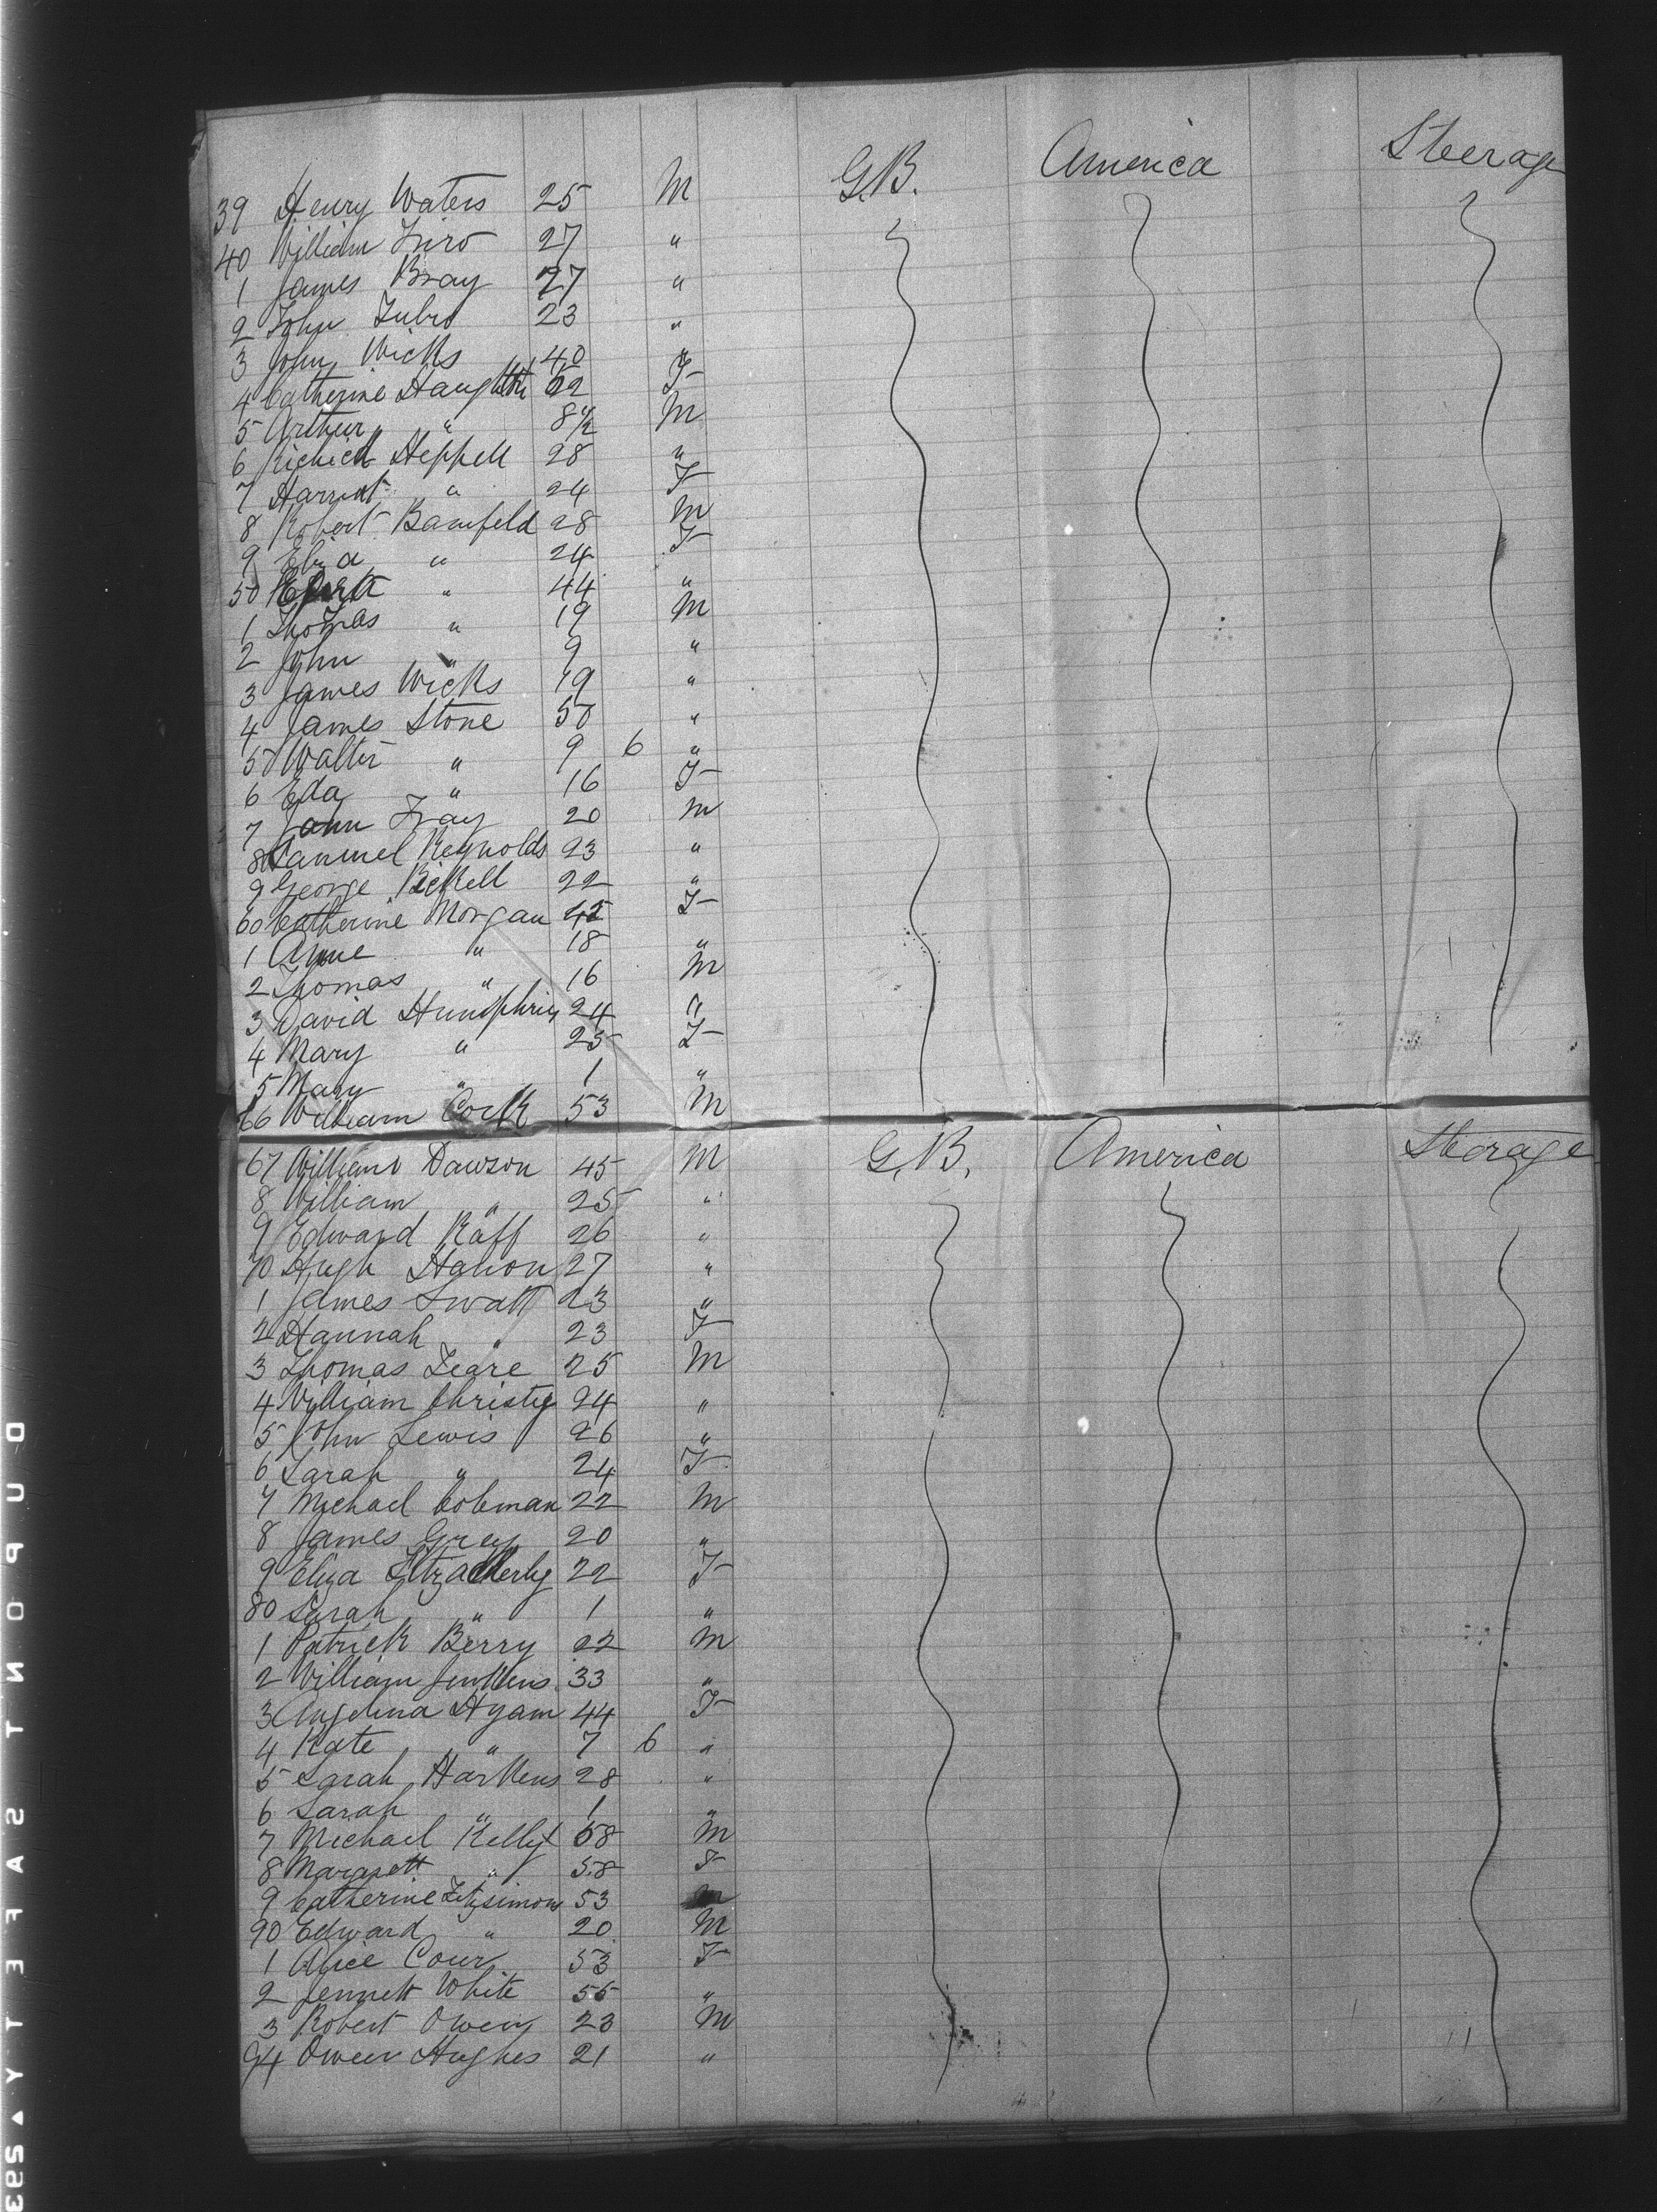 G.B. America Steerage
39 Henry Waters 25 M
40 William 27 "
1 James Bray 27 "
2 John 23 "
3 John Wicks 40 "
4 Catherine 62 F
5 Arthur " 8 M
6 Heppell 28 "
7 Harriet " 24 F
8 Robert Bamfeld 28 M
9 Eliza " 24 F
50 " 44 "
1 Thomas " 19 M
2 John " 9 "
3 James Wicks 19 "
4 James Stone 50 "
5 Walter " 9 6 "
6 Eda " 16 F
7 20 M
8 Samuel Reynolds 23 "
9 George Bickell 22 "
60 Catherine Morgan 42 F
1 Anne " 18 "
2 Thomas " 16 M
3 David Humphries 24 "
4 Mary " 25 F
5 Mary " 1 "
66 William Cock 53 M
67 William Dawson 45 M G.B. America Steerage
8 William " 25 "
9 Edward Raff 26 "
70 Hugh 27 "
1 James Swatt 23 "
2 Hannah " 23 F
3 Thomas 25 M
4 William Christy 24 "
5 John Lewis 26 "
6 Sarah " 24 F
7 Michael Coleman 22 M
8 James Grey 20 "
9 Eliza 22 F
80 Sarah " 1 "
1 Patrick Berry 22 M
2 William Jenkens 33 "
3 Angelina Hyam 44 F
4 Kate " 7 6 "
5 Sarah Harkens 28 "
6 Sarah " 1 "
7 Michael Kelly 58 M
8 Margrett " 58 F
9 Catherine Fitzsimons 53
90 Edward " 20 M
1 Alice 53 F
2 Jennett White 55 "
3 Robert Owen 23 M
94 Owen Hughes 21 "
DUPONT SAFETY